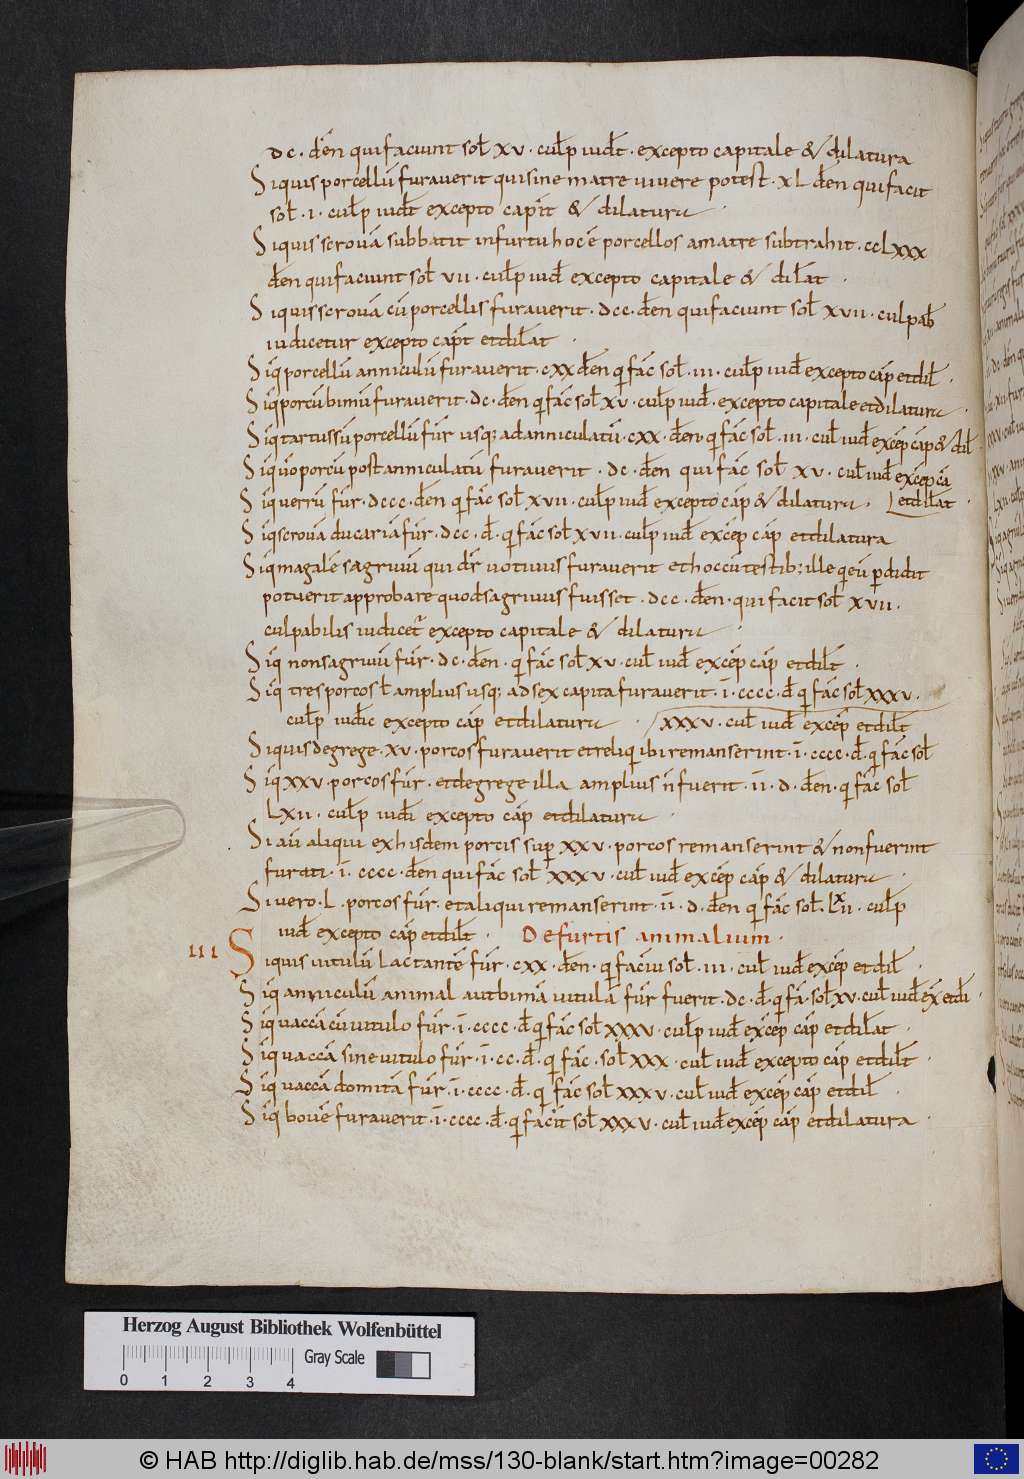 dc · den̄ qui faciunt sol̄ xv · cul̄p iud̄t · excepto capitale & dilatura
Siquis porcellū furaverit qui sine matre vivere potest · xL den̄ qui facit
sol̄ · i · cul̄p iud̄t excepto capit̄ & dilatura ·
Siquis scrovā subbatit in furtu hoc ē porcellos amatre subtrahit · ccLxxx
den̄ qui faciunt sol̄ vii · cul̄p iud̄ excepto capitale & dil̄at ·
Siquis scrovā cū porcellis furaverit · dcc · den̄ qui faciunt sol̄ xvii · culpab̄
iudicetur excepto cap̄t et dil̄at ·
Siq̄ porcellū anniculū furaverit · cxx den̄ q̄ fac̄ sol̄ · iii · cul̄p iud̄ excepto cap̄ et dil̄ ·
Siq̄ porcū bimū furaverit · dc · den̄ q̄ fac̄ sol̄ xv · cul̄p iud̄ · excepto capitale et dilatura ·
Siq̄ tartussū porcellū fur̄ usq; ad anniculatū · cxx · den̄ · q̄ fac̄ sol̄ · iii · cul̄ iud̄ excep̄ cap̄ & dil̄ ·
Siq̄ ūo porcū post anniculatū furaverit · dc · den̄ qui fac̄ sol̄ xv · cul̄ iud̄ excep̄ ca̅
Siq̄ verrū fur̄ · dccc · den̄ q̄ fac̄ sol̄ xvii · cul̄p iud̄ excepto cap̄ & dilatura · et dil̄at ·
Siq̄ scrovā ducariā fur̄ · dcc · d̄ · q̄ fac̄ sol̄ xvii · cul̄p iud̄ excep̄ cap̄ et dilatura
Siq̄ magalē sagrivū qui dr̄ votivus furaverit et hoc cū testib; ille q̄ eū p̄didit
potuerit approbare quod sagrivus fuisset · dcc · den̄ · qui facit sol̄ xvii ·
culpabilis iudicet̄ excepto capitale & dilatura ·
Siq̄ non sagrivū fur̄ · dc · den̄ · q̄ fac̄ sol̄ xv · cul̄ iud̄ excep̄ cap̄ et dil̄t ·
Siq̄ tres porcos l̄ amplius usq; ad sex capita furaverit · ī · cccc · d̄ q̄ fac̄ sol̄ xxxv ·
cul̄p iudic̄ excepto cap̄ et dilatura · xxxv · cul̄ iud̄ excep̄ et dil̄t
Siquis de grege · xv · porcos furaverit et reliq̄ ibi remanserint · ī · cccc · d̄ · q̄ fac̄ sol̄
Siq̄ xxv · porcos fur̄ · et de grege illa amplius n̄ fuerit · īī · d · den̄ · q̄ fac̄ sol̄
Lxii · cul̄p iud̄i excepto cap̄ et dilatura ·
Si aū aliqui ex hisdem porcis sup̄ xxv · porcos remanserint & non fuerint
furati · ī · cccc · den̄ qui fac̄ sol̄ xxxv · cul̄ iud̄ excep̄ cap̄ & dilatura ·
Si vero · L · porcos fur̄ · et aliqui remanserint · īī · d · den̄ q̄ fac̄ sol̄ · Lxii · cul̄p
iud̄ excepto cap̄ et dil̄t · De furtis animalium ·
III Siquis vitulū Lactantē fur̄ · cxx · den̄ · q̄ faciu sol̄ · iii · cul̄ iud̄ excep̄ et dil̄ ·
Siq̄ anniculū animal aut bimā vitulā fur̄ fuerit · dc · d̄ · q̄ fa̅ · sol̄ xv · cul̄ iud̄ ex̄ et di̅ ·
Siq̄ vaccā cū vitulo fur̄ · ī · cccc · d̄ q̄ fac̄ sol̄ xxxv · cul̄p iud̄ excep̄ cap̄ et dil̄at ·
Siq̄ vaccā sine vitulo fur̄ · ī · cc · d̄ · q̄ fac̄ · sol̄ xxx · cul̄ iud̄ excepto cap̄ et dil̄t ·
Siq̄ vaccā domitā fur̄ · ī · cccc · d̄ · q̄ fac̄ sol̄ xxxv · cul̄ iud̄ excep̄ cap̄ et dil̄ ·
Siq̄ bovē furaverit · ī · cccc · d̄ · q̄ facit̄ sol̄ xxxv · cul̄ iud̄ excep̄ cap̄ et dilatura ·
Herzog August Bibliothek Wolfenbüttel
Gray Scale
0 1 2 3 4
© HAB http://diglib.hab.de/mss/130-blank/start.htm?image=00282